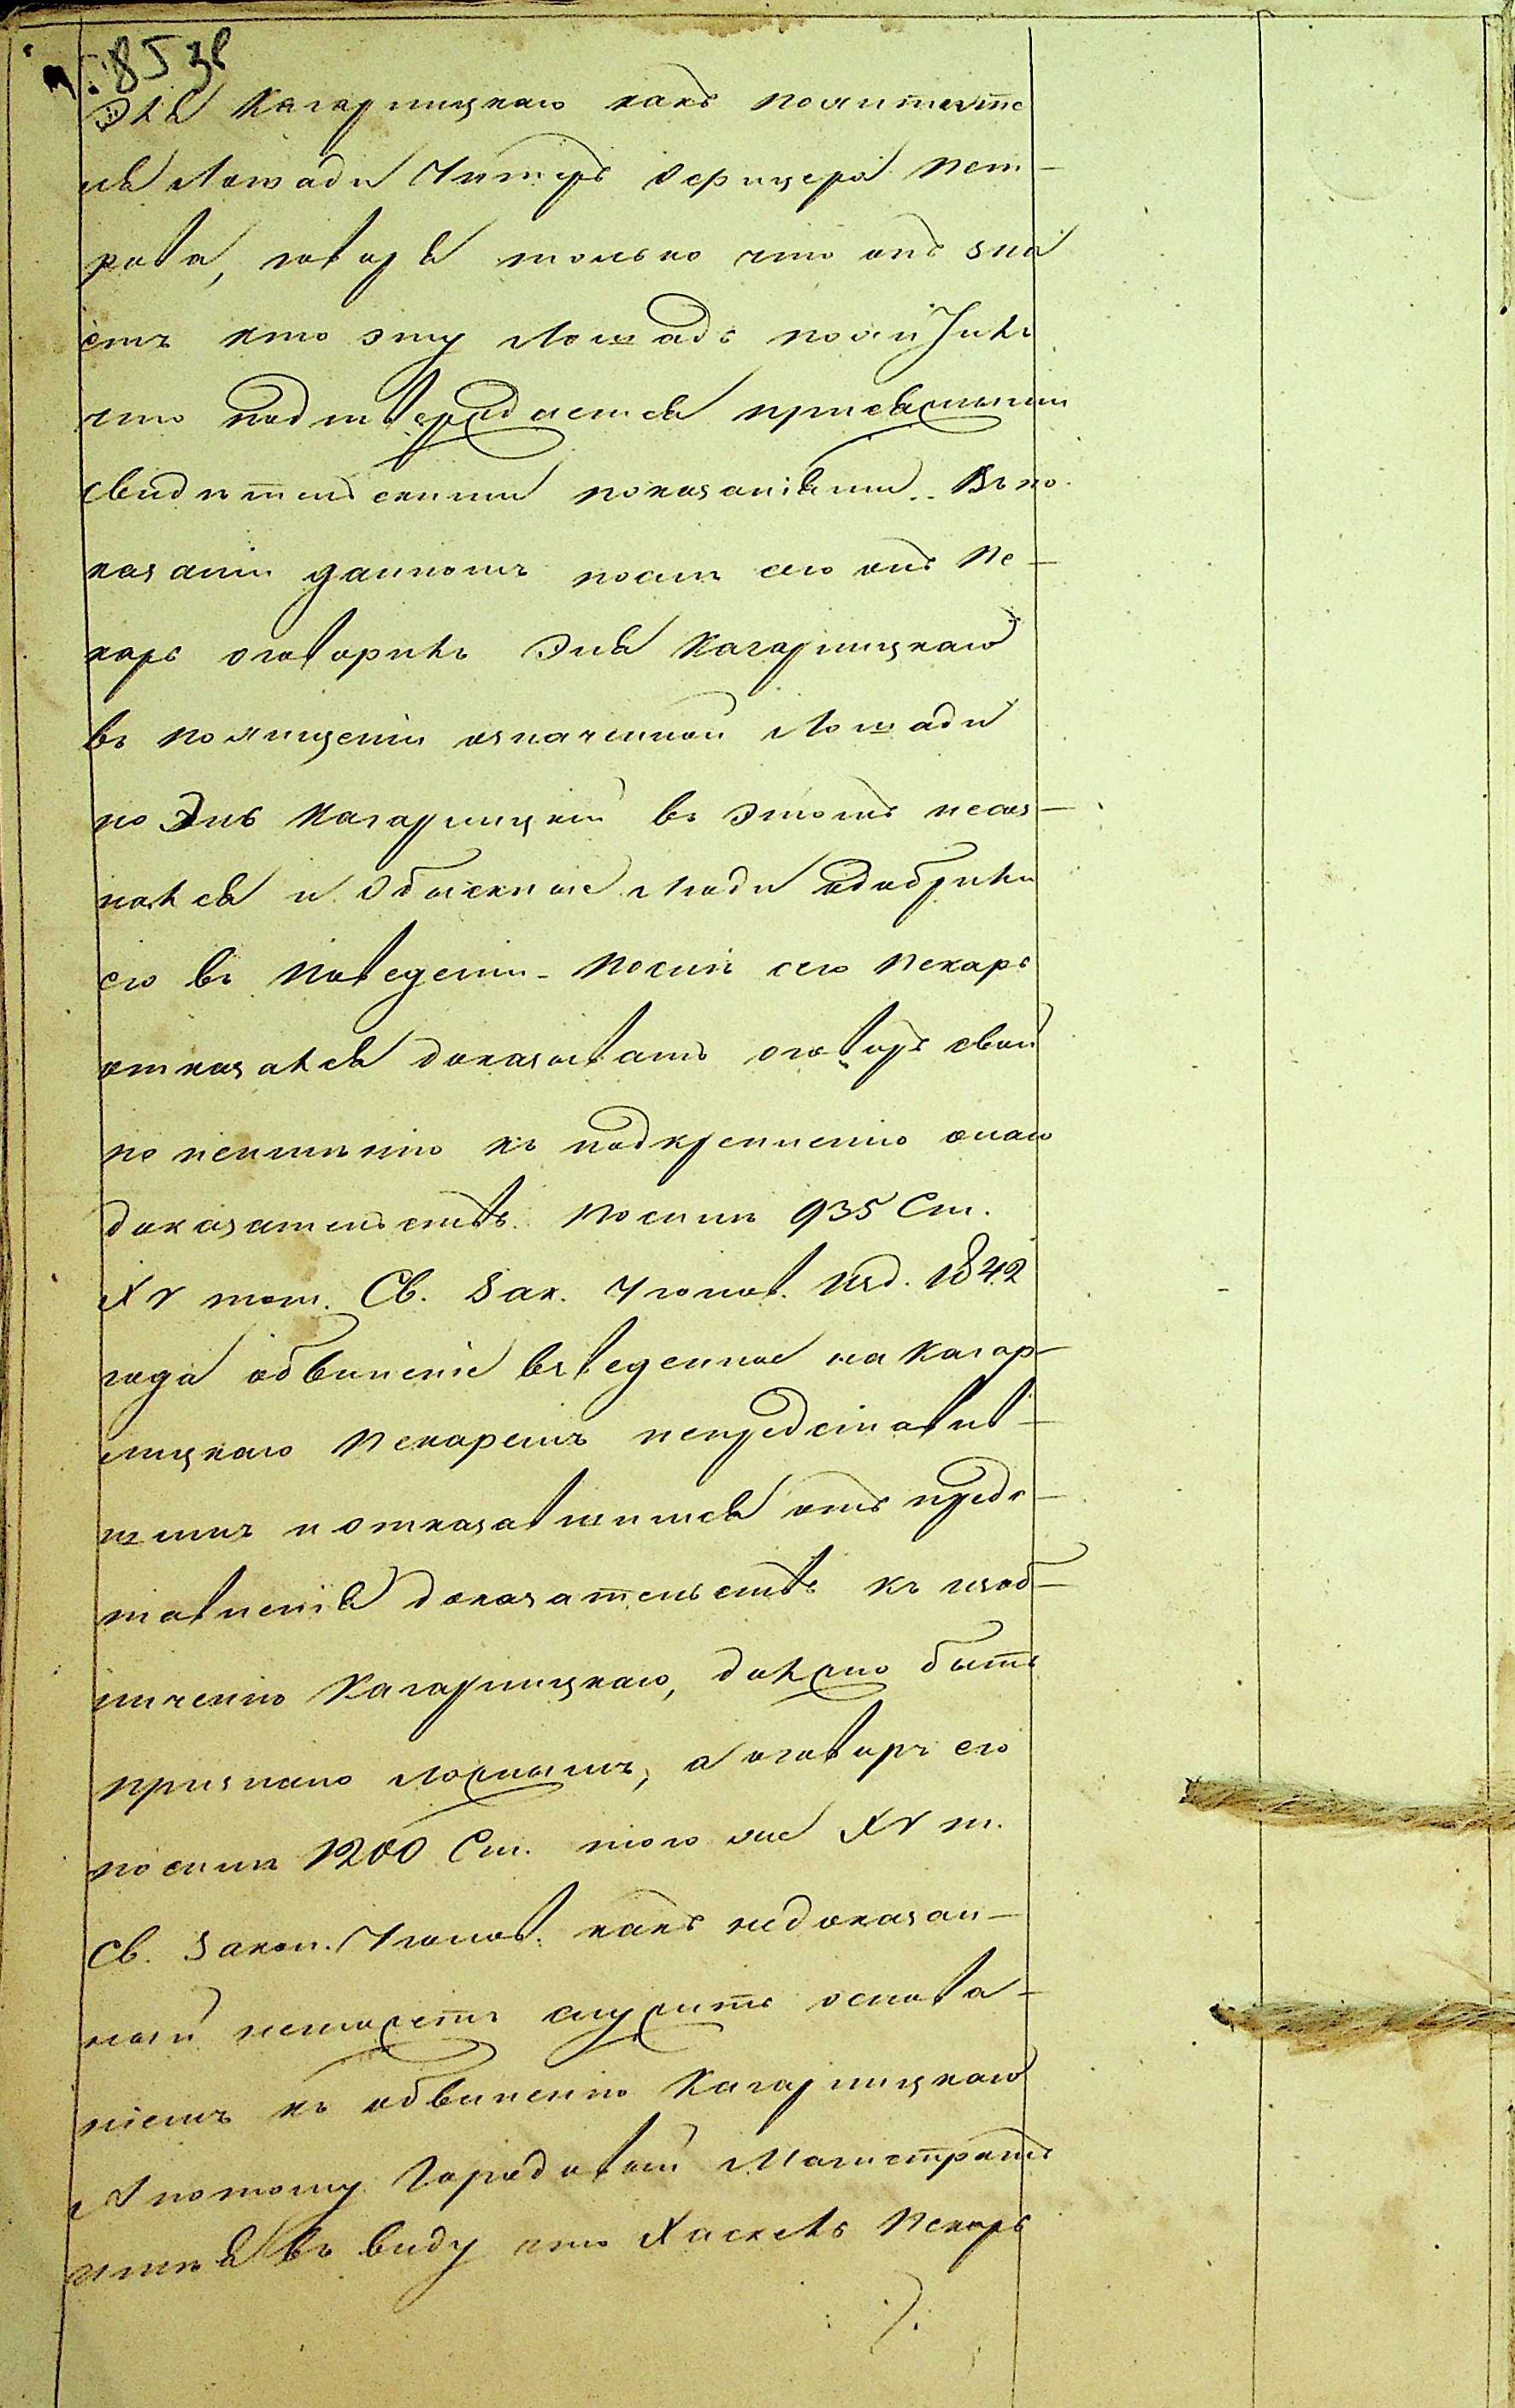 85 зв
Эля Кагарлицкаго какъ похитите
ля лошади Унтеръ Офицера Пет-
рова, говоря только что онъ зна
етъ кто эту лошадь похитилъ
что подтверждается присяжными
свидѣтельскими показаніями. Въ по-
казаніи данномъ послѣ сего онъ Пе-
карь оговорилъ Эля Кагарлицкаго
въ похищеніи означенной лошади
но Эль Кагарлицкій въ этомъ несоз-
нался и Обыскные люди одобрили
его въ поведеніи. Послѣ сего Пекарь
отказался доказывать оговоръ свой
по неимѣнію къ подкрепленію онаго
доказательствъ. По силѣ 935 Ст.
XV том. Св. Зак. Уголов. Изд. 1842
года обвиненіе взведенное на Кагар-
лицкаго Пекаремъ непредставив-
шимъ и отказавшимся отъ предс-
тавленія доказательствъ къ изоб-
личенію Кагарлицкаго, должно быть
признано ложнымъ, а оговоръ его
по силѣ 1200 Ст. того же XV т.
Св. Закон. Уголов. какъ недоказан-
ный неможетъ служить основа-
ніемъ къ обвиненію Кагарлицкаго
А потому Городовой Магистратъ
имѣя въ виду что Хаскель Пекарь